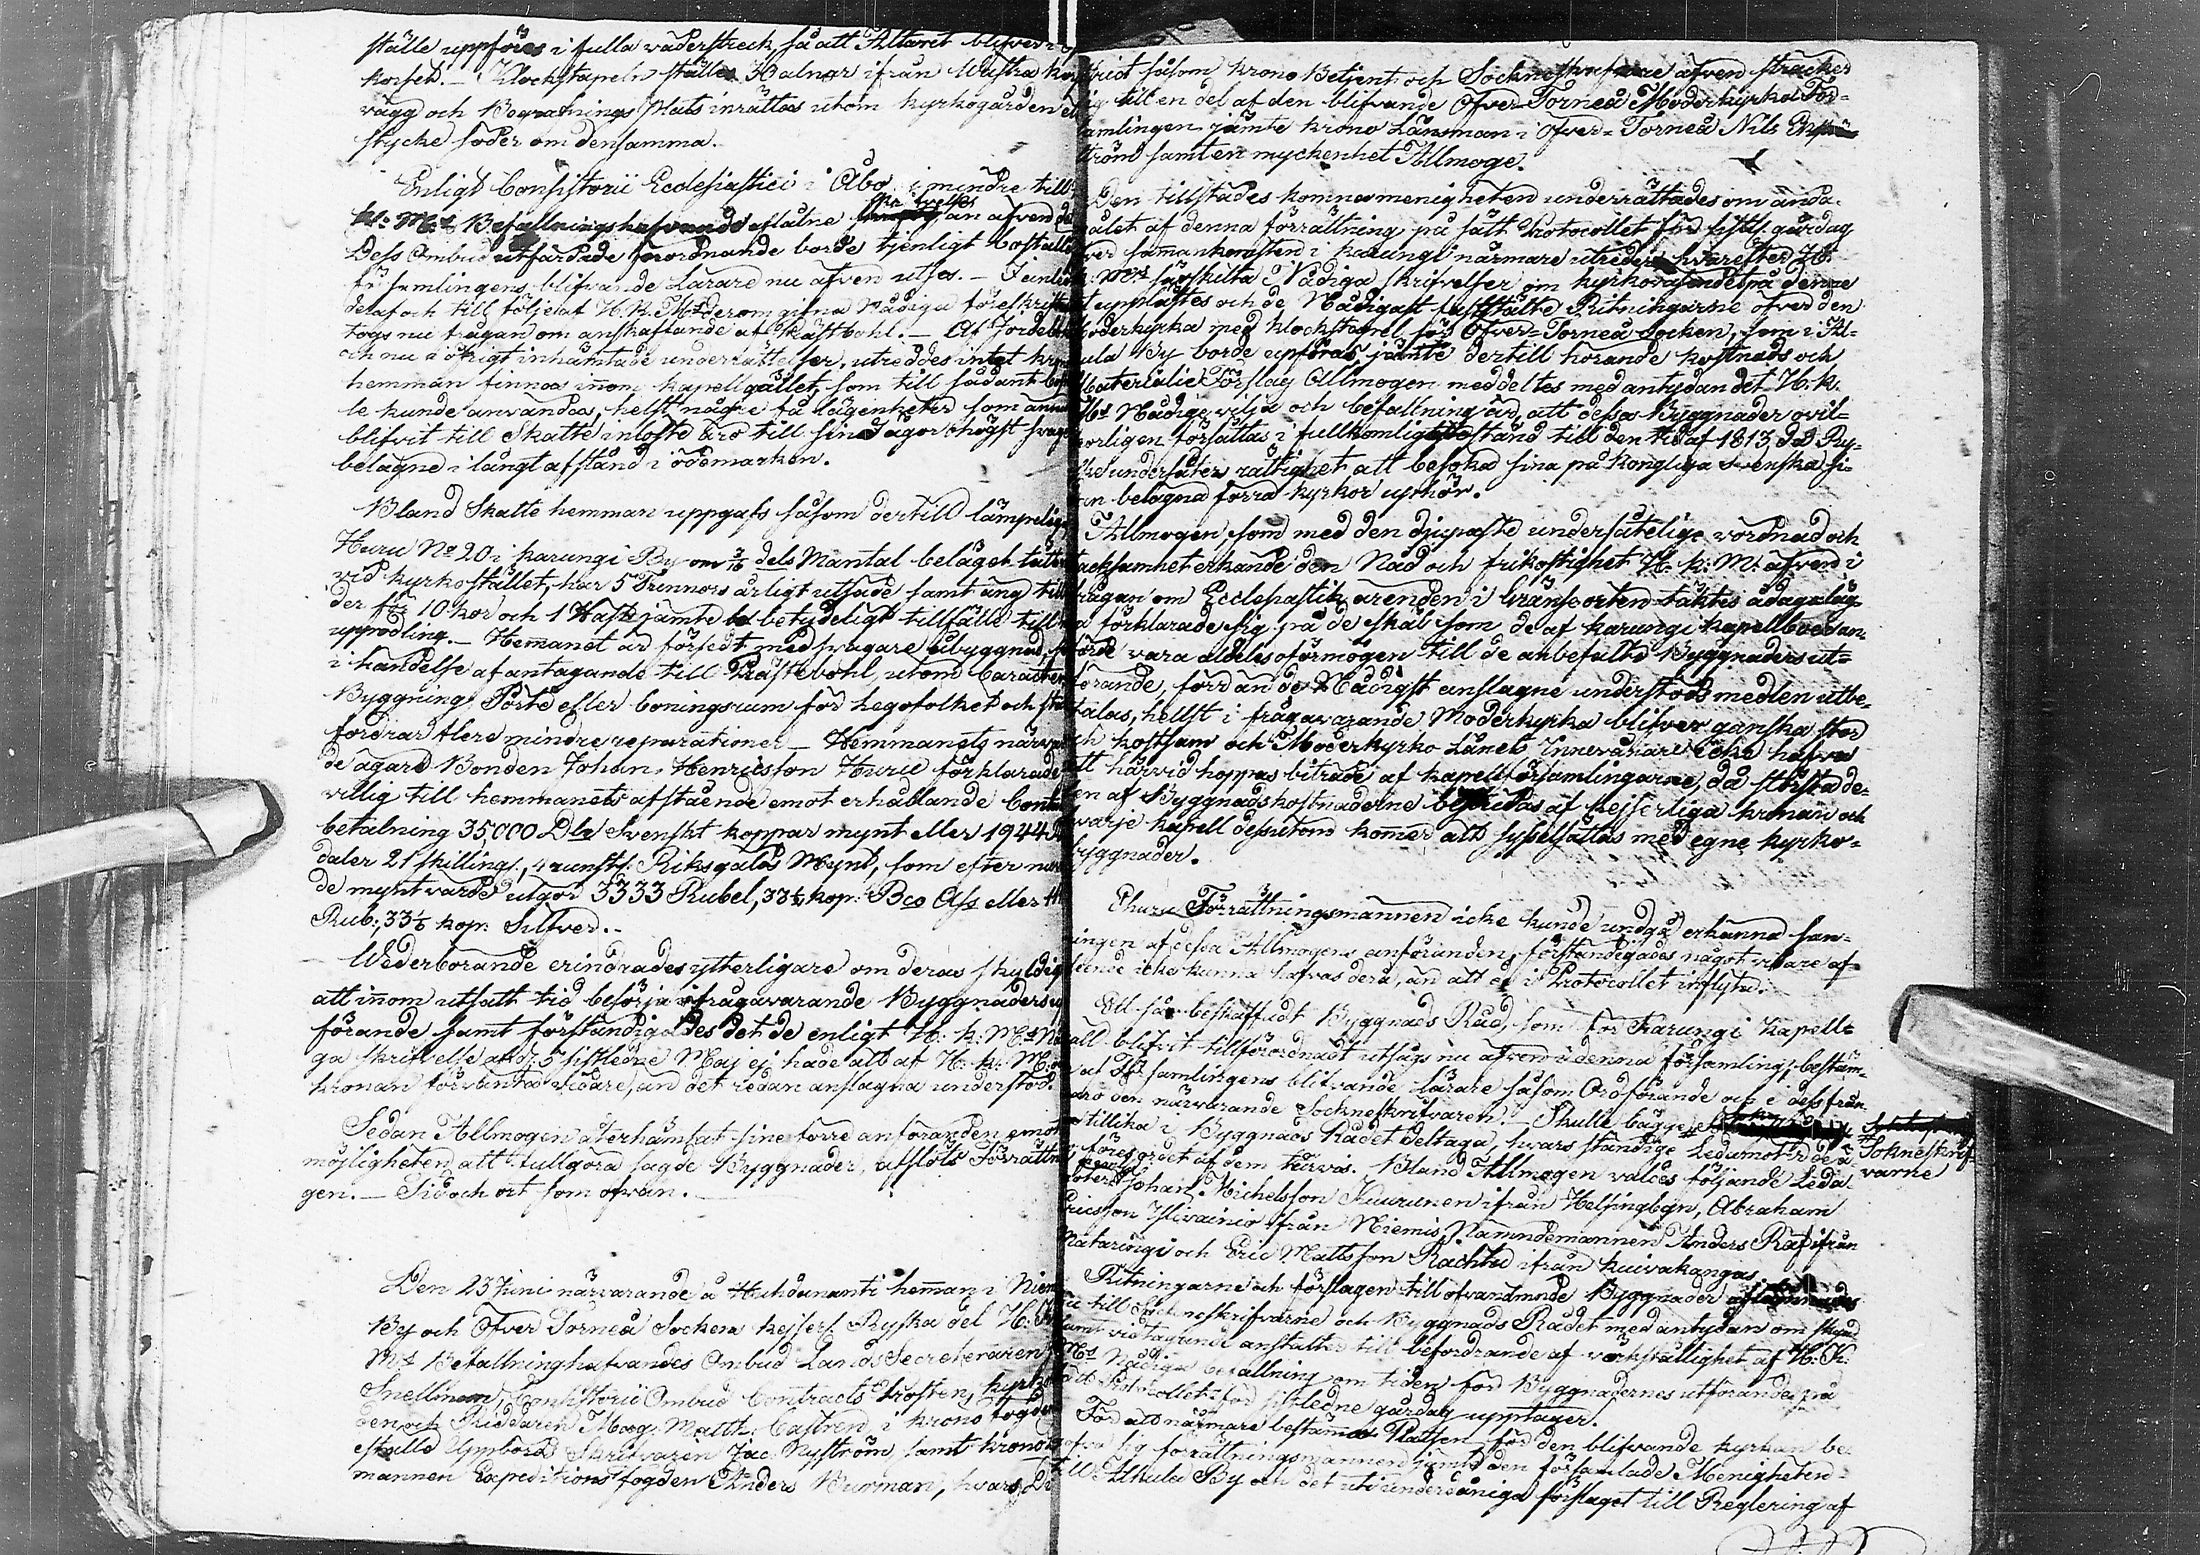 ställe uppföres i fulla väderstreck, så att Altaret blifver i
korset. — Klockstapeln ställes 30 alnar ifrån Wästra kor
vägg och Begrafnings plats inrättas utom kyrkogården et
stycke söder om densamma.
Enligt Consistorii Ecclesiastici i Åbo, i mindre till
K: M:ts Befallningshafvande aflåtne skrifvelse än äfven de
Dess Ombud utfärdade förordnande borde tjenligt Boställe
församlingens blifvande Lärare nu äfven utses. —
deraf och till följe af H. K. M:ts derom gifna Nådiga föreskrift
togs nu frågan om anskaffande af Prästbohl. — Af Jordebok
och nu i öfrigt inhämtade underrättelser, utreddes intet krono
hemman finnas inom kapellgället, som till sådant bo
le kunde användas, helst några få lägenheter som ännu
blifvit till Skatte inlöste äro till sina ägor högst svag
belägne i långt afstånd i ödemarken.
Bland Skatte hemman uppgafs såsom dertill lämpelig
Huru No 20 i Karungi By om 3/16 dels Mantal beläget tätt
vid kyrkostället, har 5 Tunnors årligt utsäde samt äng till
der för 10 kor och 1 Häst jämte betydeligt tillfälle till
uppodling. — Hemanet är försedt med svagare åbyggnad,
i händelse af antagande till Prästebohl, utom Caracters
Byggning Pörte eller boningsrum för legofolket och
fordrar flere mindre reparationer — Hemmanets närva
de ägare Bonden Johan Henricsson Huru förklarade
villig till hemmanets afstående emot erhållande Conta
betalning 35,000 Dlr Svenskt koppar mynt eller 1944 R
daler 21 skilling, 4 runst: Riksgälds Mynt, som efter nu
de myntvärde utgör 3333 Rubel, 33⅓ kop: Bco Ass eller
Rub: 33⅓ kop: Silfver. —
Wederbörande erindrades ytterligare om deras skyldig
att inom utsatt tid besörja ifrågavarande Byggnaders
förande samt förständigades det de enligt H: K: M:ts Nå
ga skrifvelse af d. 5 sistledne Maj ej hade att af H: K: M:
kronan förvänta vidare, än det redan anslagna understöd.
Sedan Allmogen återhämtat sine förre anföranden emot
möjligheten att fullgöra sagde Byggnader, afslöts Förrättnin
gen. — Tid och ort som ofvan. —
Den 23 Junii närvarande å Huhdananti heman i Niemis
By och Öfver Torneå Socken Kejserl. Ryska del H: K:
M:ts Befallninghafvandes Ombud Lands Secreteraren
Snellman, Consistorii Ombud Contracts Prosten, kyrkoh
den och Riddaren Mag: Matth: Castren, i krono fogdens
ställe Uppbörds Skrifvaren Jac: Nyström, samt krono
mannen Expeditions fogden Anders Burman, hvars Di
strict såsom krono Betjent och Sockneskrifvare äfven sträcker
sig till en del af den blifvande Öfver-Torneå Moderkyrko För-
samlingen jämte krono Länsman i Öfver-Torneå Nils
ström samt en myckenhet Allmoge.
Den tillstädes komna menigheten underrättades om ända-
målet af denna förrättning på sätt Protocollet för sistl. gårdag
öfver sammankomsten i Karungi närmare utreder, hvarefter H.
K: M:ts särskilta Nådiga skrifvelser om kyrkoväsendet på denne
ort upplästes och de Nådigast fastställte Ritningarne öfver den
Moderkyrka med klockstapel för Öfver-Torneå Socken, som i Al-
kula By borde uppföras, jämte dertill hörande kostnads och
Materialie Förslag Allmogen meddeltes med antydan det H: K:
M:ts Nådiga vilja och befallning är, att dessa Byggnader ovil-
korligen försättas i fullkomligt stånd till den tid af 1813, då Ry-
ske undersåters rättighet att besöka sina på Kongliga Svenska si-
dan belägna förra kyrkor upphör.
Allmogen som med den djupaste undersåtelige vördnad och
tacksamhet erkände den Nåd och frikostighet H. K: M: äfven i
frågan om Ecclesiastik ärenden i Gränseorten täckts ådagaläg
ga förklarade sig på de skäl som de af Karungi kapellboar an-
förde vara aldeles oförmögen till de anbefalte Byggnaders ut-
förande, förr än de Nådigst anslagne understöds medlen utbe-
talas, hellst i frågavarande Moderkyrka blifver ganska stor
och kostsam och Moderkyrko Länets Innevånare icke hafva
att härvid hoppas biträde af kapellförsamlingarne, då största de-
len af Byggnadskostnaderne bestrides af kejserliga kronan och
hvarje kapell dessutom kommer att sysselsättas med egne kyrko-
byggnader.
Ehuru Förrättningsmännen icke kunde undgå erkänna san-
ningen af dessa Allmogens anföranden, förständigades något vidare af-
seende icke kunna hafvas derå, än att de i Protocollet inflyta.
Ett så beskaffadt Byggnads Råd, som för Karungi kapell-
gäll blifvit tillförordnadt utsågs nu äfven i denna församling, bestäm-
dt af Församlingens blifvande Lärare såsom Ordförande och i dess från-
varo den närvarande Sockneskrifvaren. — Skulle bägge # Sokneskrif-
varne
tillika i Byggnads Rådet deltaga, hvars ständige Ledamöter de ä
ro föres ordet af dem turvis. Bland Allmogen valdes följande Leda-
möter Johan Michelsson Kuurunen ifrån Helsingbyn, Abraham
Ericsson Ylivainio ifrån Niemis, Nämndemannen Anders Raf ifrån
Matarengi och Eric Mattsson Rachtu ifrån Kuivakangas.
Ritningarne och förslagen till ofvannämnde Byggnader aflämnades
nu till Sockneskrifvarne och Byggnads Rådet med antydan om skynd
samt vidtagande anstalter till befordrande af verkställighet af H: K:
M:ts Nådiga befallning om tiden för Byggnadernes utförande på
sätt Protocollet för sistledne gårdag upptager.
För att närmare bestämma Platsen för den blifvande kyrkan be-
gofvo sig förrättningsmännen jämte den församlade Menigheten
till Alkula By och det uti underdåniga förslaget till Reglering af